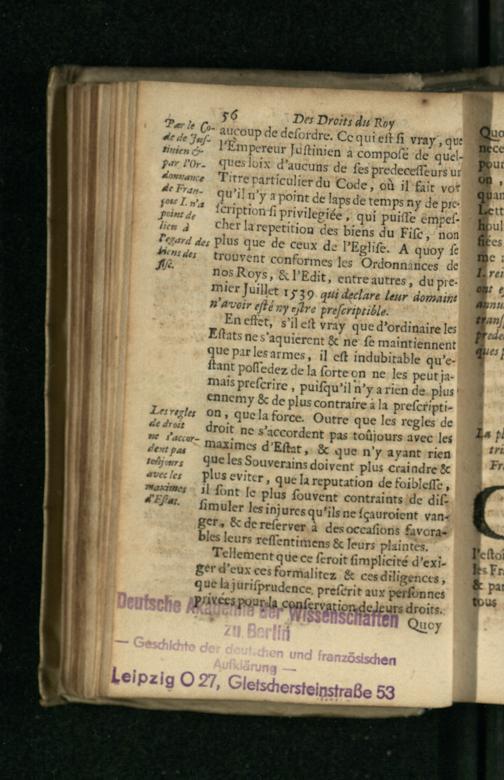 56 Des Droits du Roy
aucoup de desordre. Ce qui est si vray, que
l'Empereur Justinien a composé de quel-
ques loix d'aucuns de ses predecesseurs un
Titre particulier du Code, où il fait voir
qu'il n'y a point de laps de temps ny de pre-
scription si privilegiée, qui puisse empes-
cher la repetition des biens du Fisc, non
plus que de ceux de l'Eglise. A quoy se
trouvent conformes les Ordonnances de
nos Roys, & l'Edit, entre autres, du pre-
mier Juillet 1539 qui declare leur domaine
n'avoir esté ny estre prescriptible.
En effet, s'il est vray que d'ordinaire les
Estats ne s'aquierent & ne se maintiennent
que par les armes, il est indubitable qu'e-
stant possedez de la sorte on ne les peut ja-
mais prescrire, puisqu'il n'y a rien de plus
ennemy & de plus contraire à la prescripti-
on, que la force. Outre que les regles de
droit ne s'accordent pas toûjours avec les
maximes d'Estat, & que n'y ayant rien
que les Souverains doivent plus craindre &
plus eviter, que la reputation de foiblesse,
il sont le plus souvent contraints de dis-
simuler les injures qu'ils ne sçauroient van-
ger, & de reserver à des occasions favora-
bles leurs ressentimens & leurs plaintes.
Tellement que ce seroit simplicité d'exi-
ger d'eux ces formalitez & ces diligences,
que la jurisprudence, prescrit aux personnes
privées pour la conservation de leurs droits.
Quoy
Par le Co-
de de Jus-
tinien &
par l'Or-
donnance
de Fran-
çois I. n'a
point de
lieu à
l'egard des
biens des
fisc.
Les regles
de droit
ne s'accor-
dent pas
toûjours
avec les
maximes
d'Estat.
Deutsche Akademie der Wissenschaften
zu Berlin
— Geschichte der deutschen und französischen
Aufklärung —
Leipzig O 27, Gletschersteinstraße 53
Quo
nece
pour
on
quan
Lett
houl
fiées
me a
I. rei
ont e
annu
trans
prede
ques p
La pl
tri
Fr
l'estoi
les Fra
& par
tous